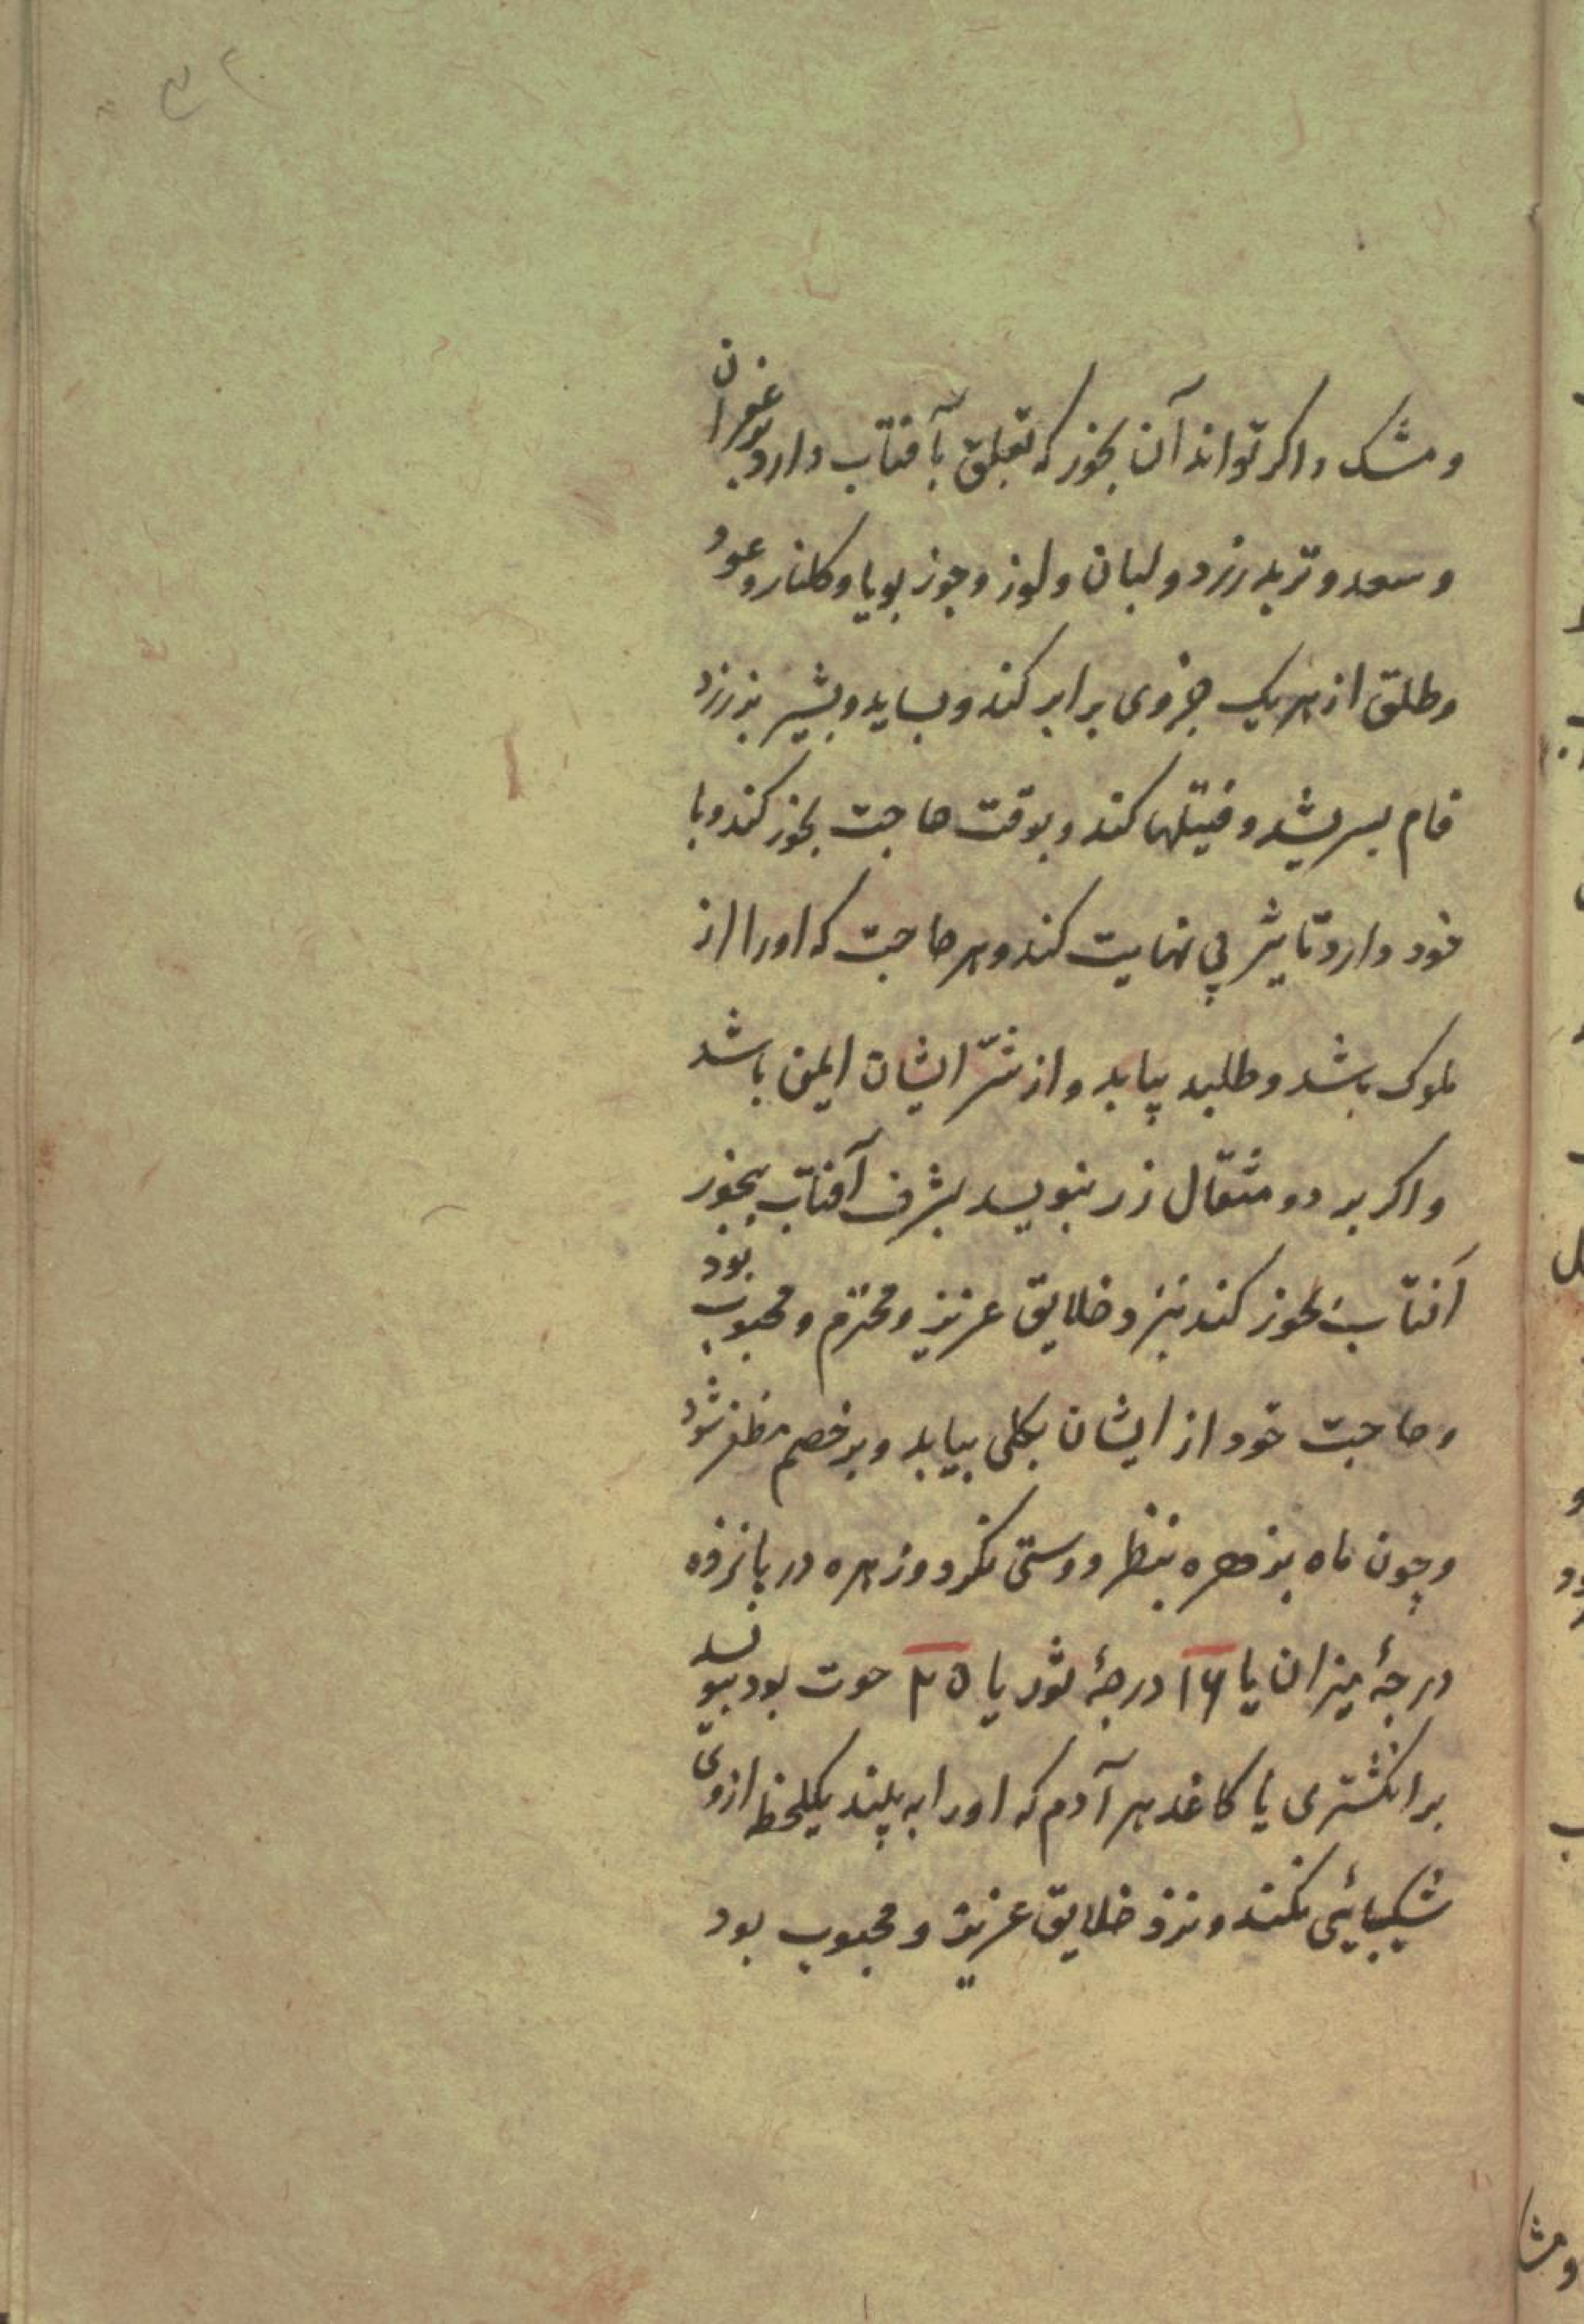 ومشک واکر تواند آن بخور که تعلق بآفتاب دارد بزعفران
وسعد و تربد زرد و لبان ولوز وجوز بویا وکلنار وعود
وطلق از هریک جزوی برابر کند و بساید و بشیر بز زرد
فام بسریشد و فتیلها کند و بوقت حاجت بخور کند و با
خود دارد تاثیر بی نهایت کند و هر حاجت که اورا از
ملوک باشد و طلبد بیابد و از شرّ ایشان ایمن باشد
واکر بر دو مثقال زر بنویسد بشرف آفتاب بخور
آفتاب بخور کند نزد خلایق عزیز و محترم و محبوب بود
وحاجت خود از ایشان بکلی بیابد و بر خصم مظفر شود
وچون ماه بزهره بنظر دوستی نکرد و زهره در پانزده
درجۀ میزان یا ۱۶ درجۀ ثور یا ۲۵ حوت بود بنویسد
بر انکشتری یا کاغد هر آدم که اورا به بیند یکلحظ ازوی
شکیبائی نکند و نزد خلایق عزیز و محبوب بود
ومشک